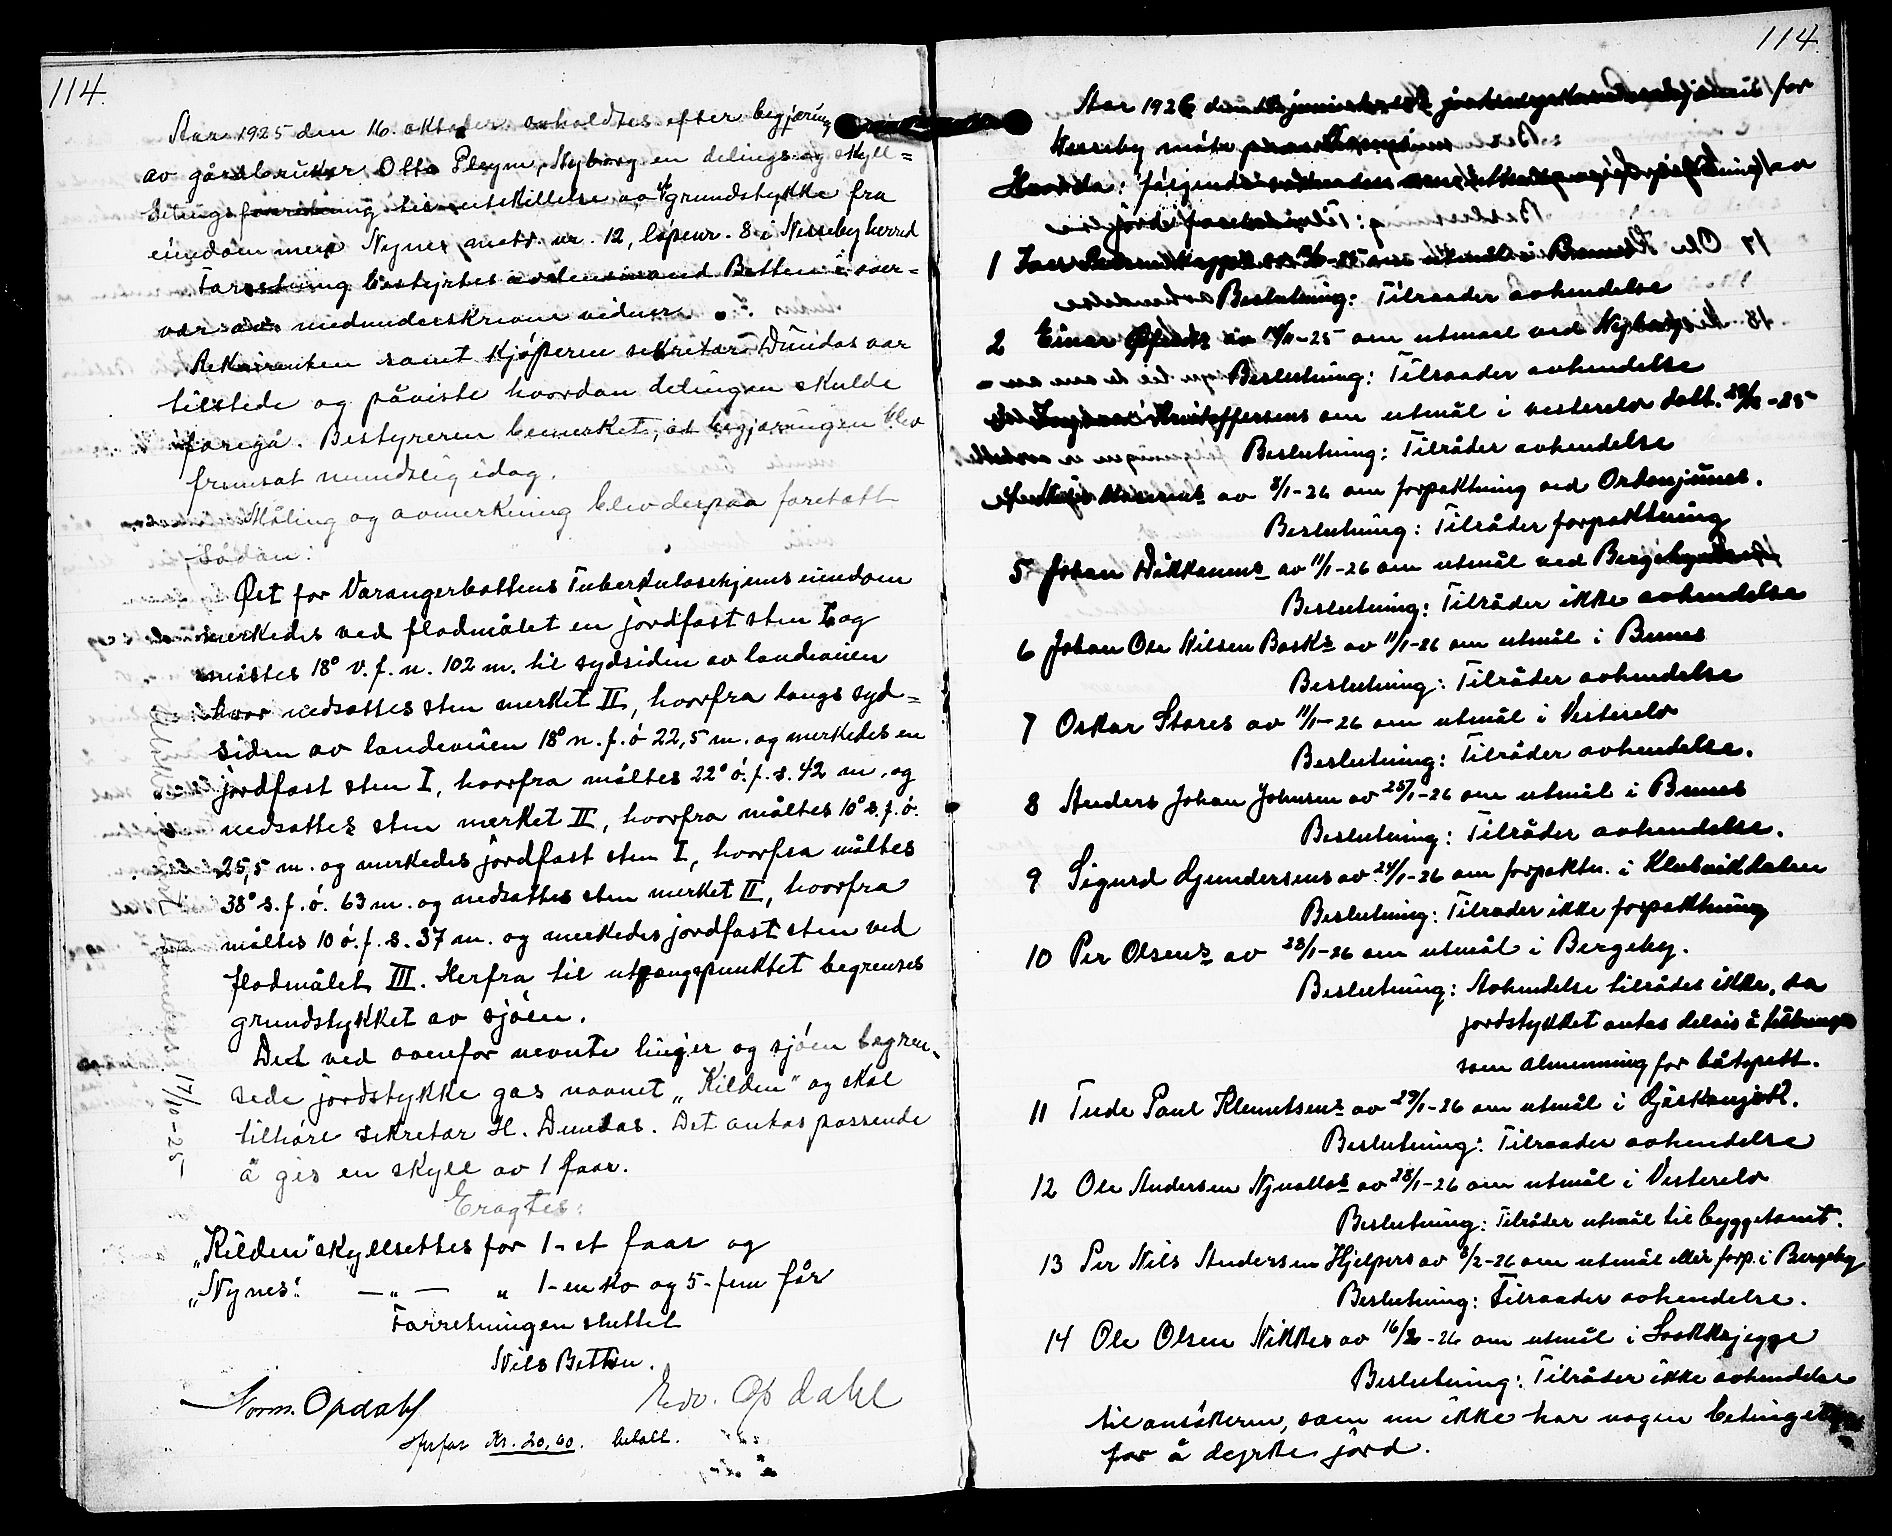 114.
Aar 1925 den 16. oktober avholdtes efter begjæring
av gårdbruker Otto Pleym, Nyborg en delings og skyll=
delingsforretning til utskillelse av et grundstykke fra
eiendommen Nynes, matr. nr. 12, løpenr. 8 i Nesseby herred
Forretning bestyrtes av lensmand Betten i over-
vær av medunderskrevne vidner.
Rekvirenten samt kjøperen sekretær Dundas var
tilstede og påviste hvordan delingen skulde
foregå. Bestyreren bemerket, at begjæringen blev
fremsat mundtlig idag.
Måling og avmerkning blev derpaa foretatt
sådan:
Øst for Varangerbottens Tuberkulosehjems eiendom
merkedes ved flodmålet en jordfast sten I og
måltes 18° v.f.n. 102 m. til sydsiden av landeveien
hvor nedsattes sten merket II, hvorfra langs syd=
siden av landeveien 18° n.f.ó 22,5 m. og merkedes en
jordfast sten I, hvorfra måltes 22° ó.f.s. 42 m. og
nedsattes sten merket II, hvorfra måltes 10° s.f.ó.
25,5 m. og merkedes jordfast sten I, hvorfra måltes
38° s.f.ó. 63 m. og nedsattes sten merket II, hvorfra
måltes 10 ó.f.s. 37 m. og merkedes jordfast sten ved
flodmålet III. Herfra til utgangspunktet begrenses
grundstykket av sjøen.
Det ved ovenfor nevnte linjer og sjøen begren-
sede jordstykke gas navnet „Kilden" og skal
tilhøre sekretær H. Dundas. Det antas passende
å gis en skyll av 1 faar.
Eragtes:
„Kilden" skyllsettes for 1 - et faar og
„Nynes" — „ — „ 1 - en ko og 5 - fem får
Forretningen sluttet
Nils Betten.
Norm. Opdahl
Edv. Opdahl
Kr. 20,00. betalt.
17/10-25
114.
Aar 1926 den for
Nesseby møte paa
følgende av
1 om utmål i Bunes
Beslutning: Tilraader avhendelse
2 Einar av 14/11-25 om utmaal ved Nyborg
Beslutning: Tilraader avhendelse
Kristoffersens om utmål i vesterelv datt. 29/12-25
Beslutning: Tilråder avhendelse
av 8/1-26 om forpaktning ved
Beslutning: Tilråder forpaktning
5 Johan Dikkanens av 11/1-26 om utmål ved
Beslutning: Tilråder ikke avhendelse
6 Johan Ole Nilsen Basks av 11/1-26 om utmål i Bunes
Beslutning: Tilråder avhendelse
7 Oskar Stores av 11/1-26 om utmål i Vesterelv
Beslutning: Tilråder avhendelse.
8 Anders Johan Johnsen av 25/1-26 om utmål i Bunes
Beslutning: Tilråder avhendelse.
9 Sigurd Gundersens av 24/1-26 om forpaktn. i Klubvikdalen
Beslutning: Tilrader ikke forpaktning
10 Per Olsens av 23/1-26 om utmål i Bergeby.
Beslutning: Avhendelse tilrådes ikke, da
jordstykket antas delvis å
som almenning for båtoprett.
11 Tude Paul Klemetsens av 29/1-26 om utmål i
Beslutning: Tilraader avhendelse
12 Ole Andersen Njuollas av 28/1-26 om utmål i Vesterelv
Beslutning: Tilråder utmål til byggetomt.
13 Per Nils Andersen Hjelpers av 8/2-26 om utmål eller forp. i Bergeby
Beslutning: Tilraader avhendelse.
14 Ole Olsen Nikkes av 16/2-26 om utmål i
Beslutning: Tilråder ikke avhendelse
til ansøkeren, som nu ikke har nogen
for å dyrke jord.